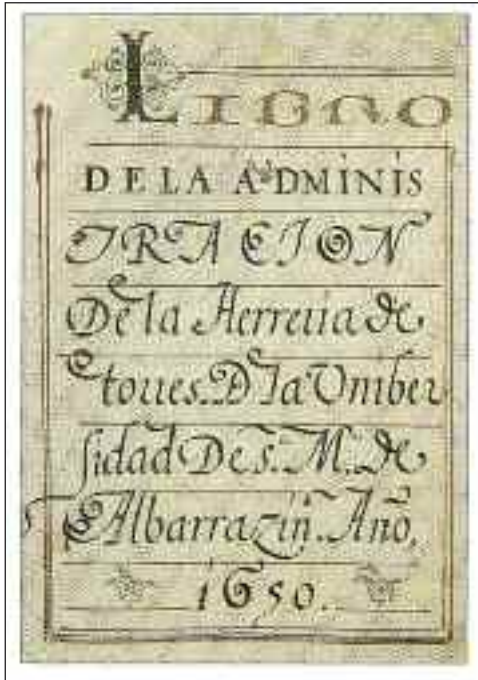 LIBRO
DE LA ADMINIS
TRACION
De la Herreria de
Torres. D la Vniber
sidad De S. M. de
Albarrazin. Año,
1650.